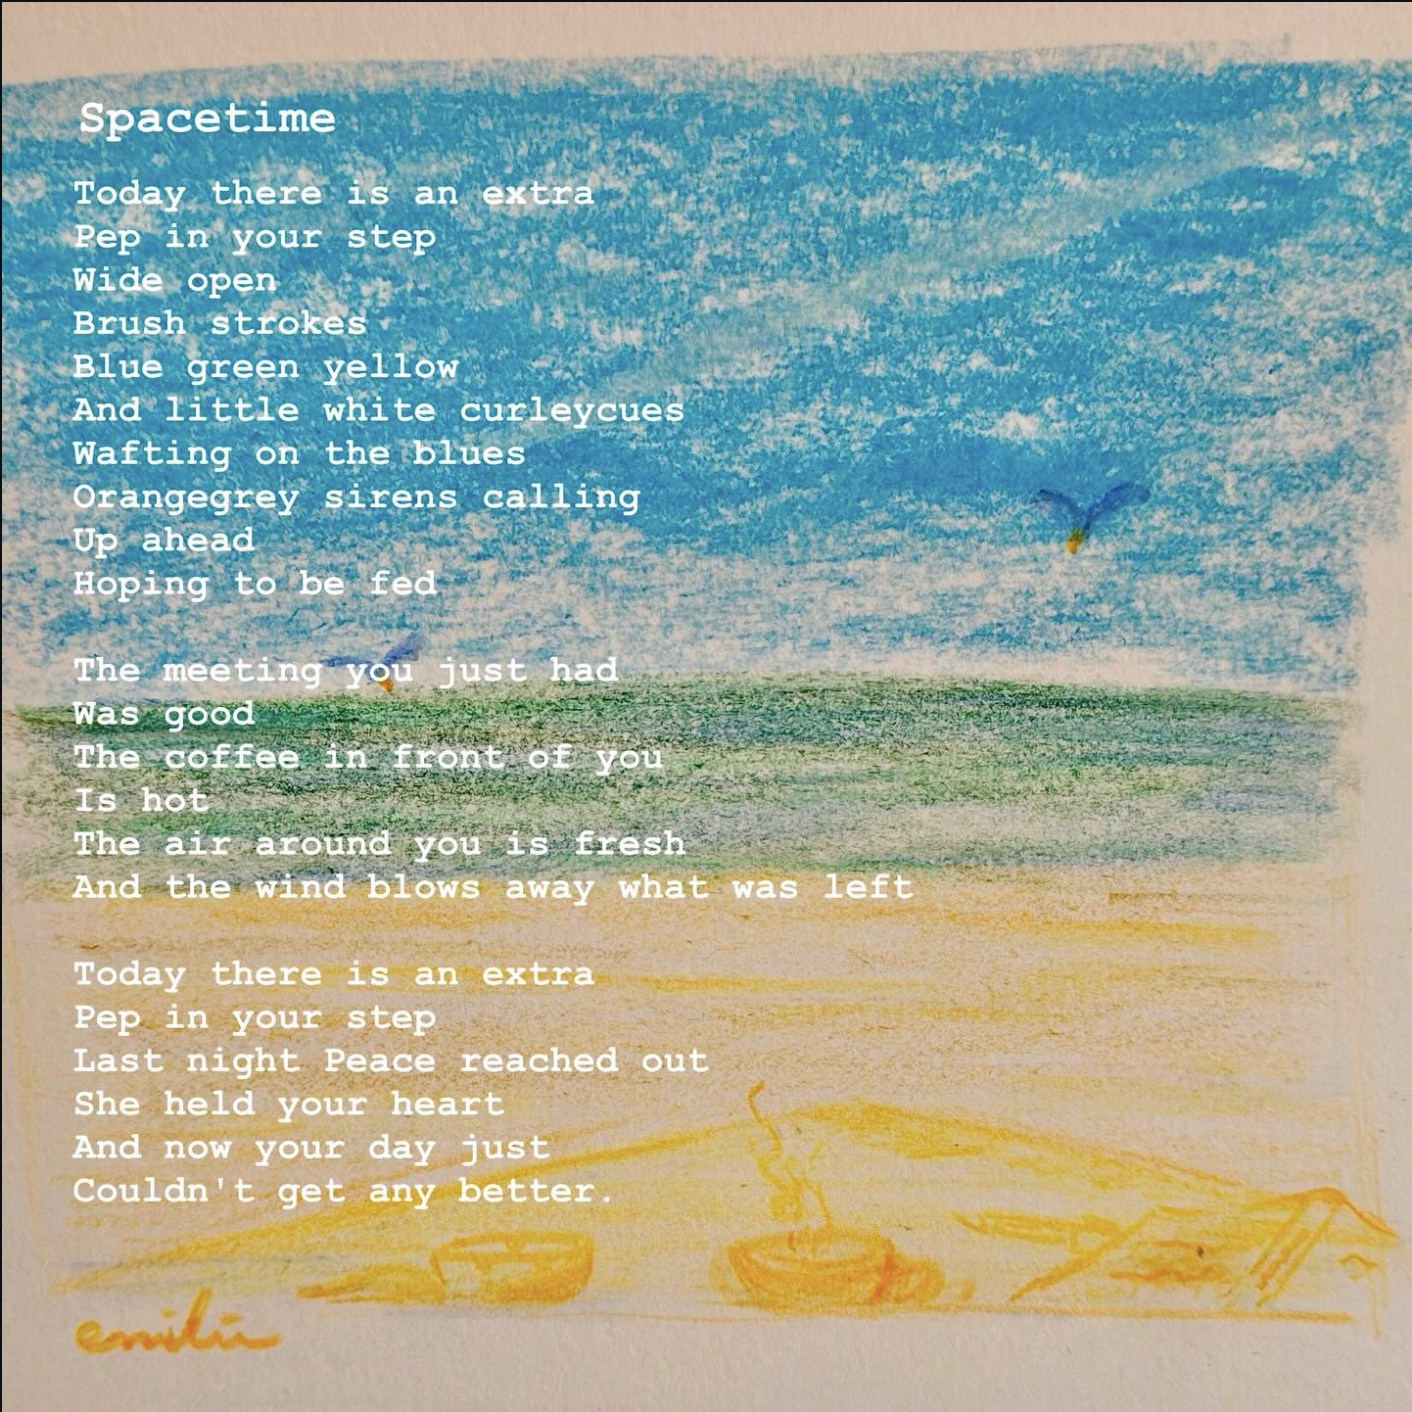 Spacetime
Today there is an extra
Pep in your step
Wide open
Brush strokes
Blue green yellow
And little white curleycues
Wafting on the blues
Orangegrey sirens calling
Up ahead
Hoping to be fed
The meeting you just had
Was good
The coffee in front of you
Is hot
The air around you is fresh
And the wind blows away what was left
Today there is an extra
Pep in your step
Last night Peace reached out
She held your heart
And now your day just
Couldn't get any better.